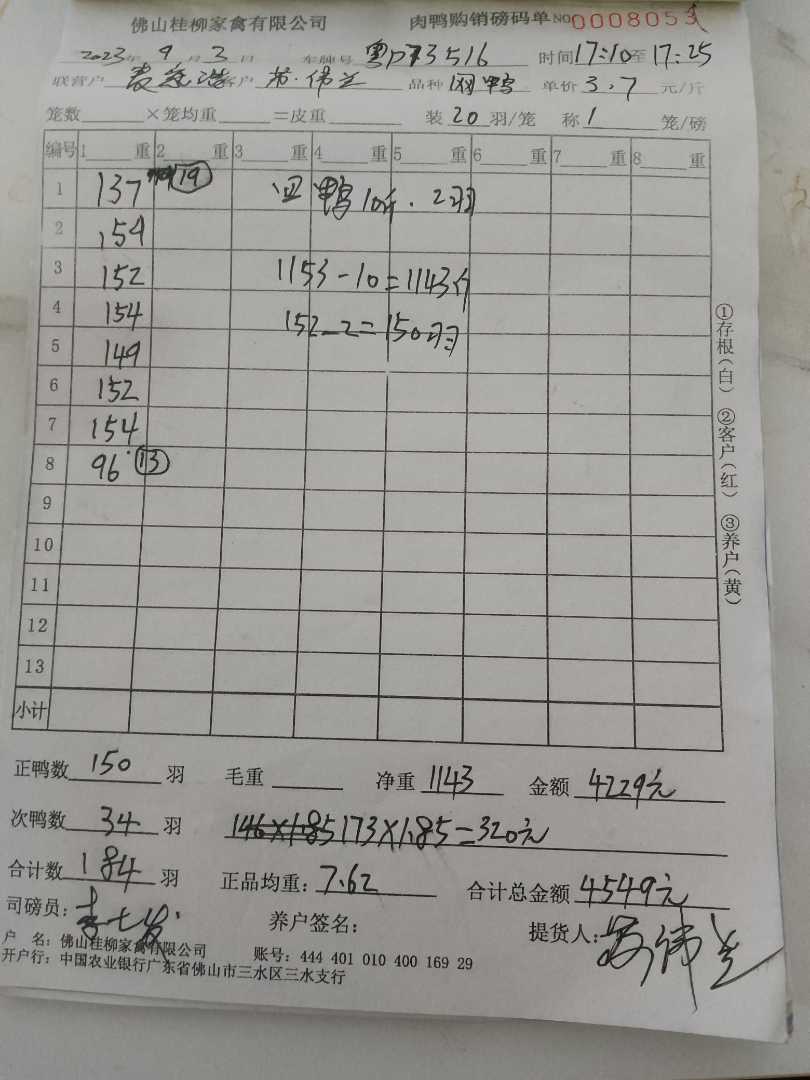 佛山桂柳家禽有限公司 肉鸭购销磅码单 NO 0008053
2023年 9月 3日 车牌号 粤P73516 时间 17:10至17:25
联营户 客户 伟兰 品种 鸭 单价 3.7 元/斤
笼数 ×笼均重 =皮重 装 20 羽/笼 称 1 笼/磅
编号 1 重 2 重 3 重 4 重 5 重 6 重 7 重 8 重
1 137 19 鸭10斤.2羽
2 154
3 152 1153-10=1143斤
4 154 152-2=150羽
5 149
6 152
7 154
8 96 13
9
10
11
12
13
小计
①存根(白) ②客户(红) ③养户(黄)
正鸭数 150 羽 毛重 净重 1143 金额 4229元
次鸭数 34 羽 146×1.85 173×1.85=320元
合计数 184 羽 正品均重: 7.62 合计总金额 4549元
司磅员: 养户签名: 提货人: 伟兰
户 名: 佛山桂柳家禽有限公司 账号: 444 401 010 400 169 29
开户行: 中国农业银行广东省佛山市三水区三水支行